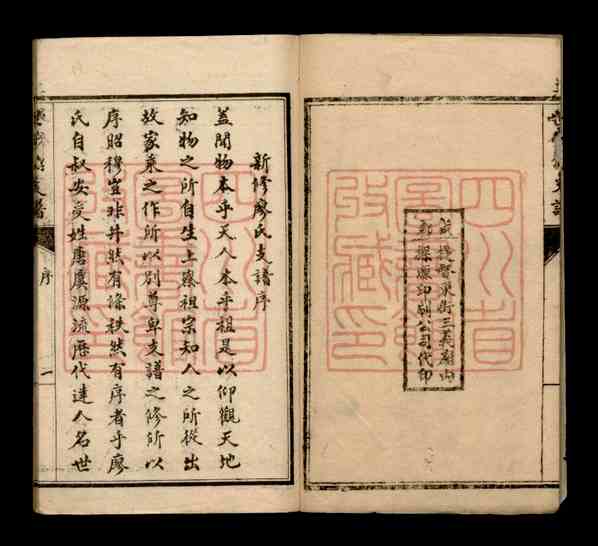 督東街三義廟內
印刷公司代印
四川省
圖書館
收藏印
新修廖氏支譜序
蓋聞物本乎天人本乎祖是以仰觀天地
知物之所自生上察祖宗知人之所從出
故家乘之作所以別尊卑支譜之修所以
序昭穆豈非井然有條秩然有序者乎廖
氏自叔安受姓唐虞源流歷代達人名世
支譜
序
一